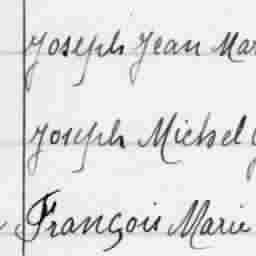 Joseph Jean Mar
Joseph Michel
François Marie